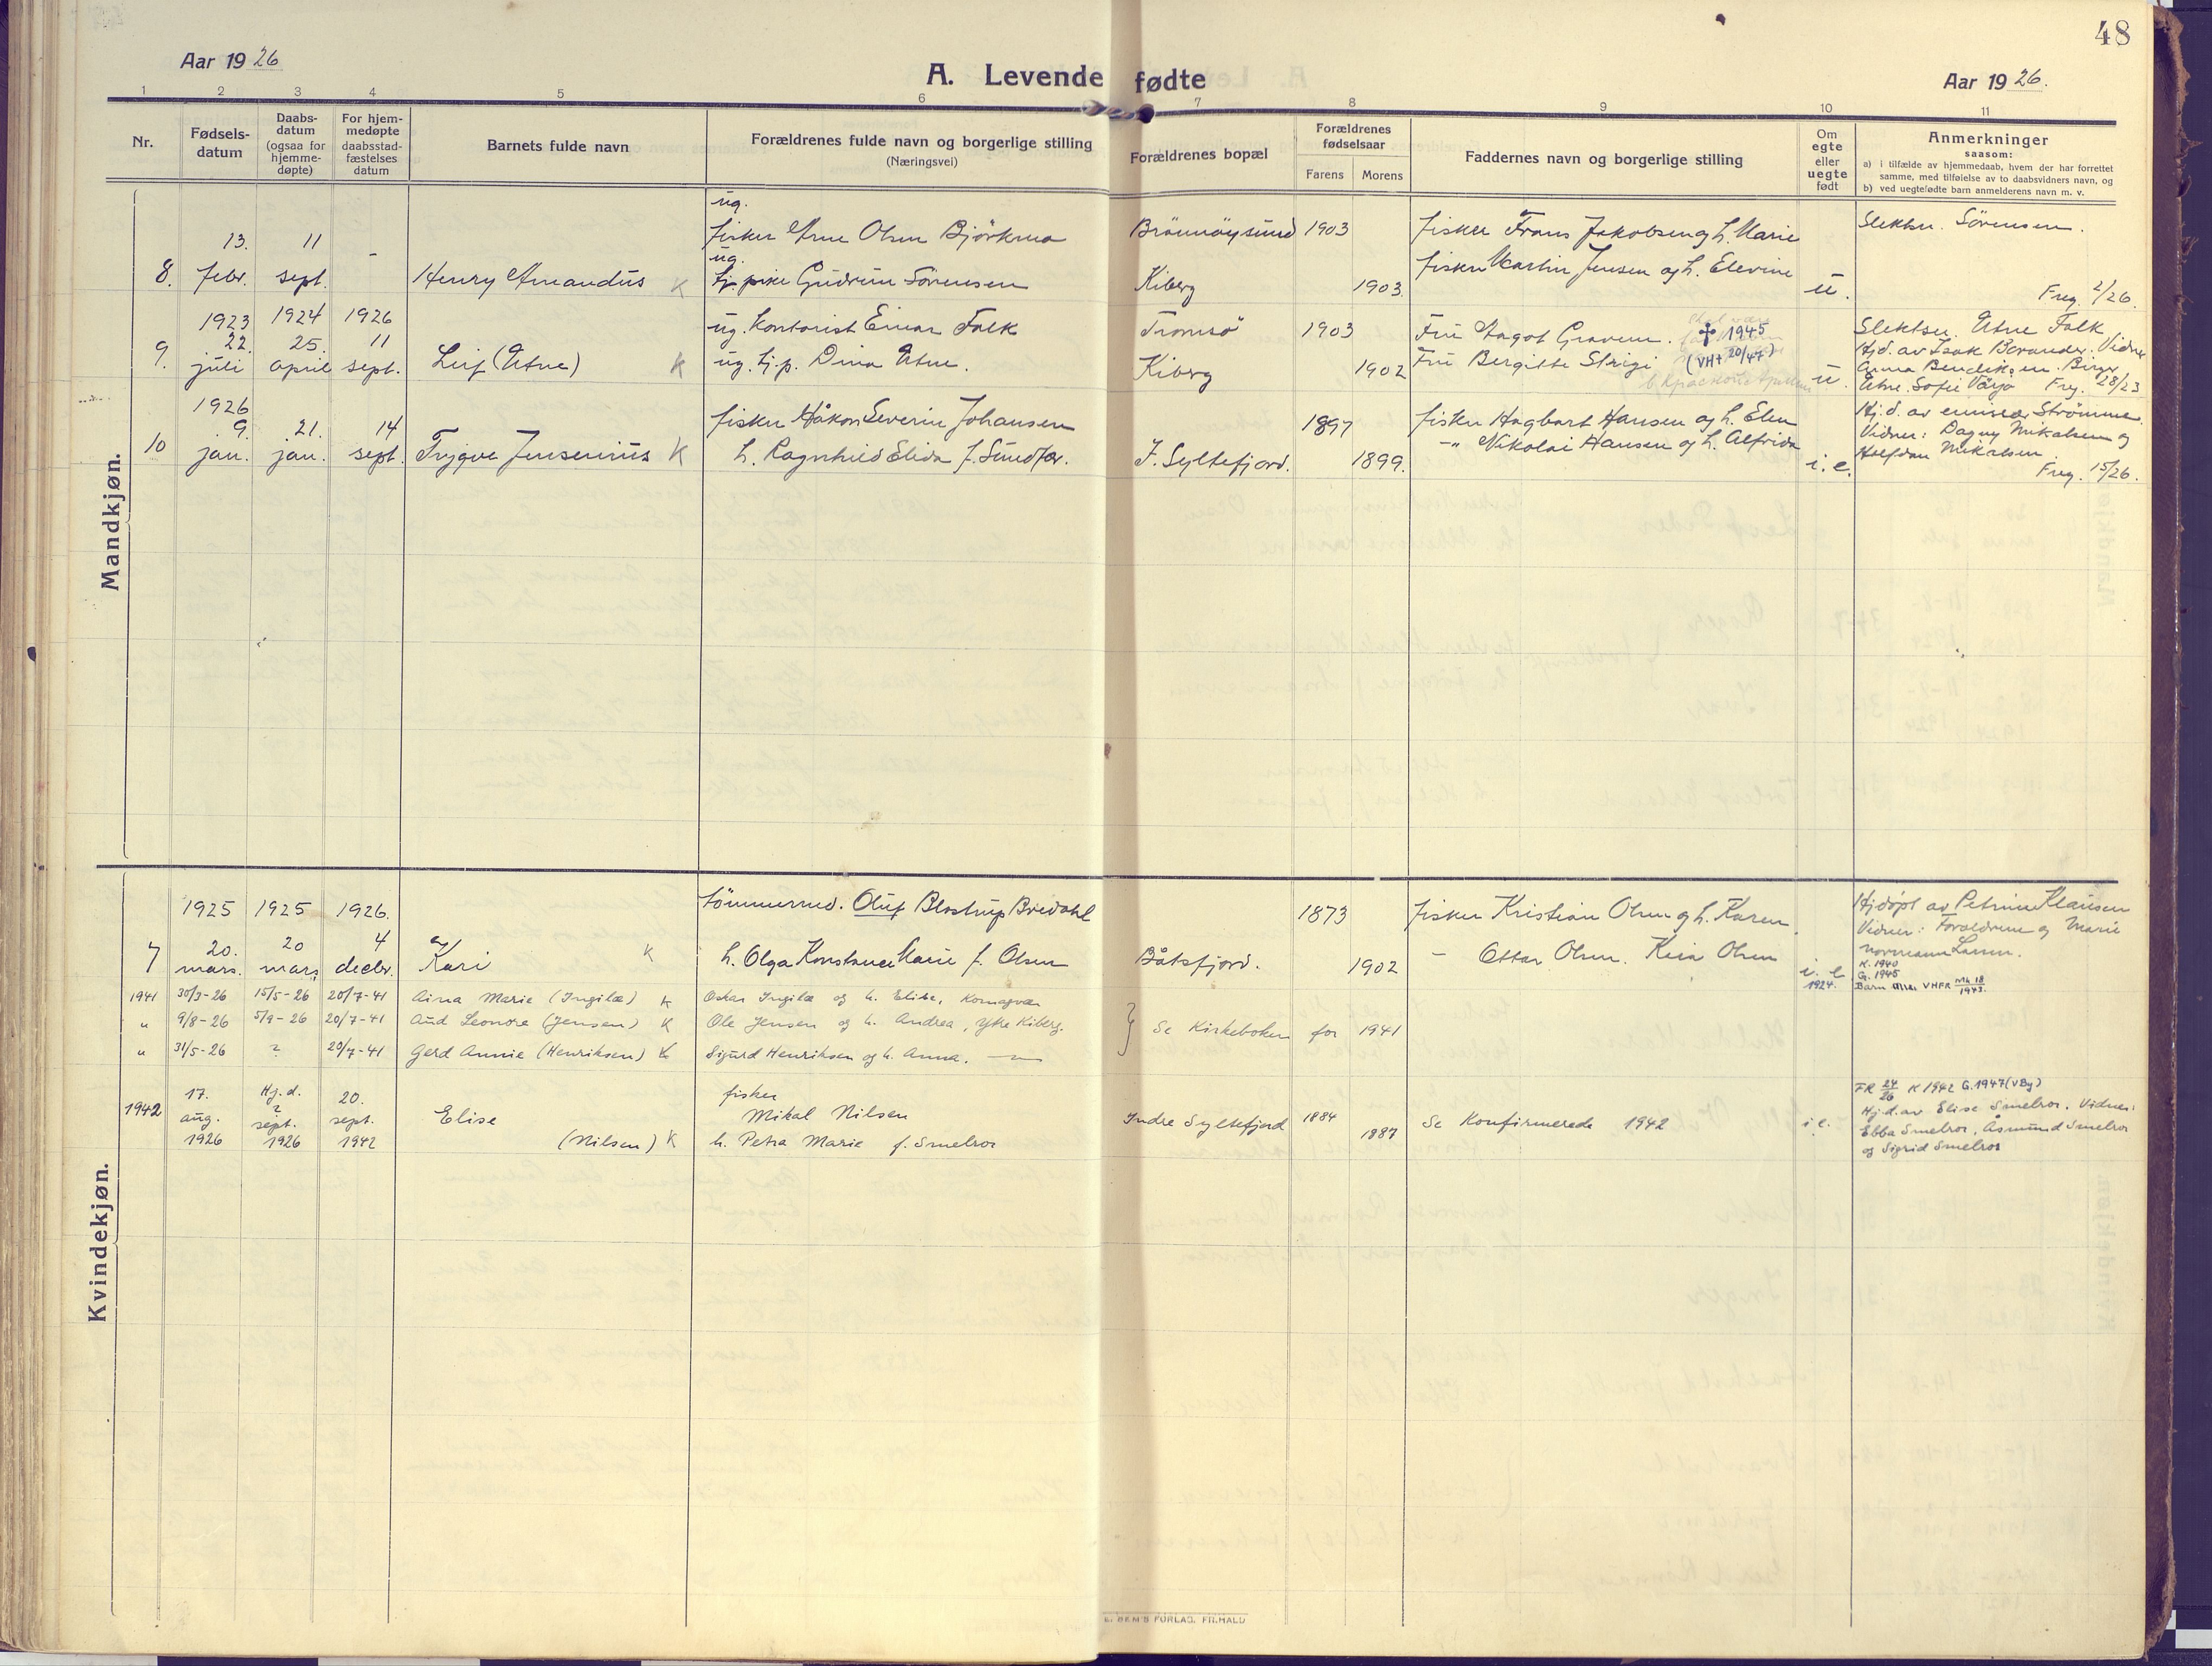 48
Aar 1926
A. Levende fødte
Aar 1926.
1 2 3 4 5 6 7 8 9 10 11
Nr.
Fødsels-
datum
Daabs-
datum
(ogsaa for
hjemme-
døpte)
For hjem-
medøpte
daabsstad-
fæstelses
datum
Barnets fulde navn
Forældrenes fulde navn og borgerlige stilling
(Næringsvei)
Forældrenes bopæl
Forældrenes
fødselsaar
Farens Morens
Faddernes navn og borgerlige stilling
Om
egte
eller
uegte
født
Anmerkninger
saasom:
a) i tilfælde av hjemmedaab, hvem der har forrettet
samme, med tilføielse av to daabsvidners navn, og
b) ved uegtefødte barn anmelderens navn m. v.
Mandkjøn.
ug.
13. 11 - fisker Arne Olsen Björkmo Brönnöysund 1903 fisker Frans Jakobsen og h. Marie Slektsn. Sörensen.
ug.
8. febr. sept. Henry Amandus K tj. pike Gudrun Sörensen Kiberg 1903. fisker Martin Jensen og h. Elevine u. Freg. 2/26.
1923 1924 1926 ug. Kontorist Einar Falk Tromsö 1903 Fru Aagot Gravem. † 1945 Slektsn. Utne Falk
22. 25. 11 Hjd. av Isak Beronder. Vidne
9. juli april sept. Leif (Utne) K ug. tj. p. Dina Utne. Kiberg 1902 Fru Bergitte Strigi (VHt 20/47) u. Anna Bendiksen. Birger
Utne. Sofie Varjo Freg. 28/23
1926
9. 21. 14 fisker Håkon Severin Johansen 1897 fisker Hagbart Hansen og h. Elen Hj. d. av emissær Strömme.
10 jan. jan. sept. Trygve Jensenius K h. Ragnhild Elida f. Smedfor. I. Syltefjord. 1899. -"- Nikolai Hansen og h. Alfrida i. e. Vidner: Dagny Mikalsen og
Halfdan Mikalsen
Freg. 15/26.
Kvindekjøn.
1925 1925 1926. tömmermd. Oluf Blostrup Bredahl 1873 fisker Kristian Olsen og h. Karen Hjdöpt av Petrine Klausen
20. 20 4 Vidner: Foreldrene og Marie
7 mars. mars decbr. Kari K h. Olga Konstance Marie f. Olsen Båtsfjord. 1902 - Ottar Olsen. Kaia Olsen i. e. 1924. Normann Larsen.
K. 1940
G. 1945
Barn VHFR Mk 18/1943.
1941 30/3-26 15/5-26 20/7-41 Aina Marie (Ingilæ) K Oskar Ingilæ og h. Elise, Komagvær
" 9/8-26 5/9-26 20/7-41 Aud Leonore (Jensen) K Ole Jensen og h. Andrea, Ytre Kiberg. } Se Kirkeboken for 1941
" 31/5-26 ? 20/7-41 Gerd Annie (Henriksen) K Sigurd Henriksen og h. Anna. —"—
17. Hj.d. 20. fisker FR 24/26 K 1942 G. 1947 (VBy)
1942 aug. ? sept. sept. Elise Mikal Nilsen Indre Syltefjord 1884 Se Konfirmerede 1942 i e. Hj.d. av Elise Smelror. Vidner:
1926 1926 1942 (Nilsen) K h. Petra Marie f. Smelror 1887 Ebba Smelror, Åsmund Smelror
og Sigrid Smelror
FORLAG. FR. HALD